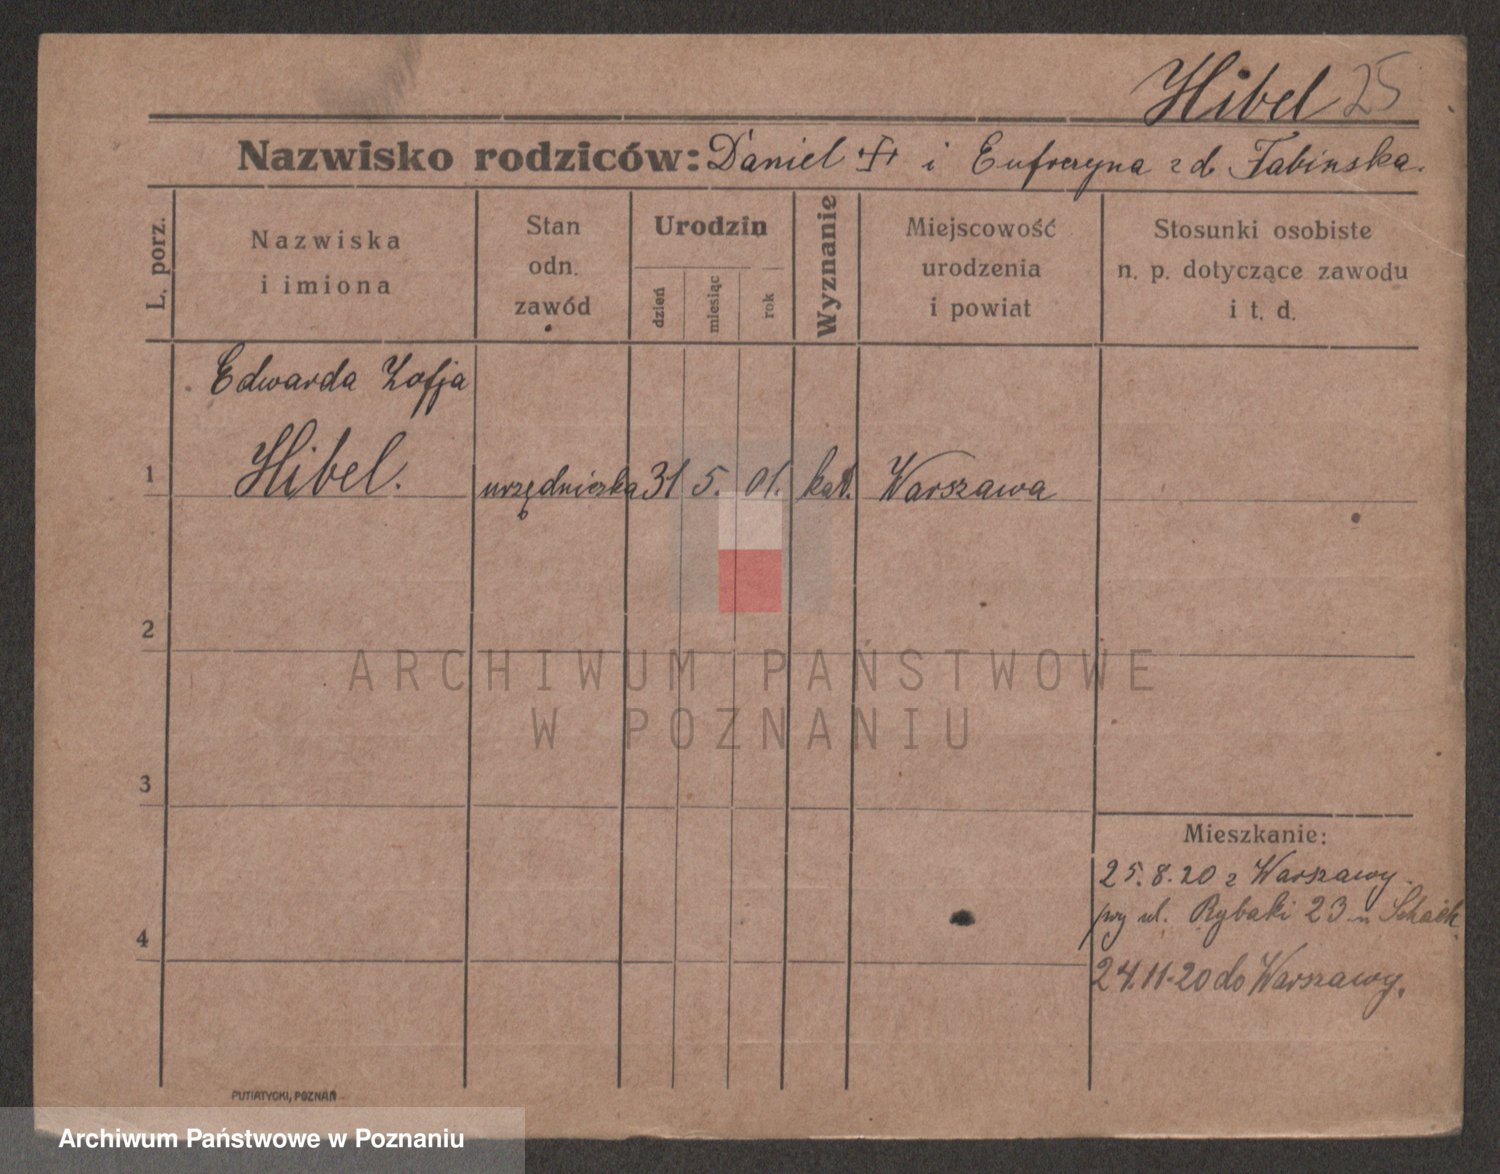 Hibel 25
Nazwisko rodziców: Daniel i Eufrozyna z d. Fabińska.
L. porz.
Nazwiska
i imiona
Stan
odn.
zawód
Urodzin
dzień
miesiąc
rok
Wyznanie
Miejscowość
urodzenia
i powiat
Stosunki osobiste
n. p. dotyczące zawodu
i t. d.
Edwarda Zofja
1 Hibel. urzędniczka 31 5. 01. kat. Warszawa
2
ARCHIWUM PAŃSTWOWE
W POZNANIU
3
Mieszkanie:
25.8.20 z Warszawy
przy ul. Rybaki 23
4
24.11.20 do Warszawy.
PUTIATYCKI, POZNAŃ
Archiwum Państwowe w Poznaniu